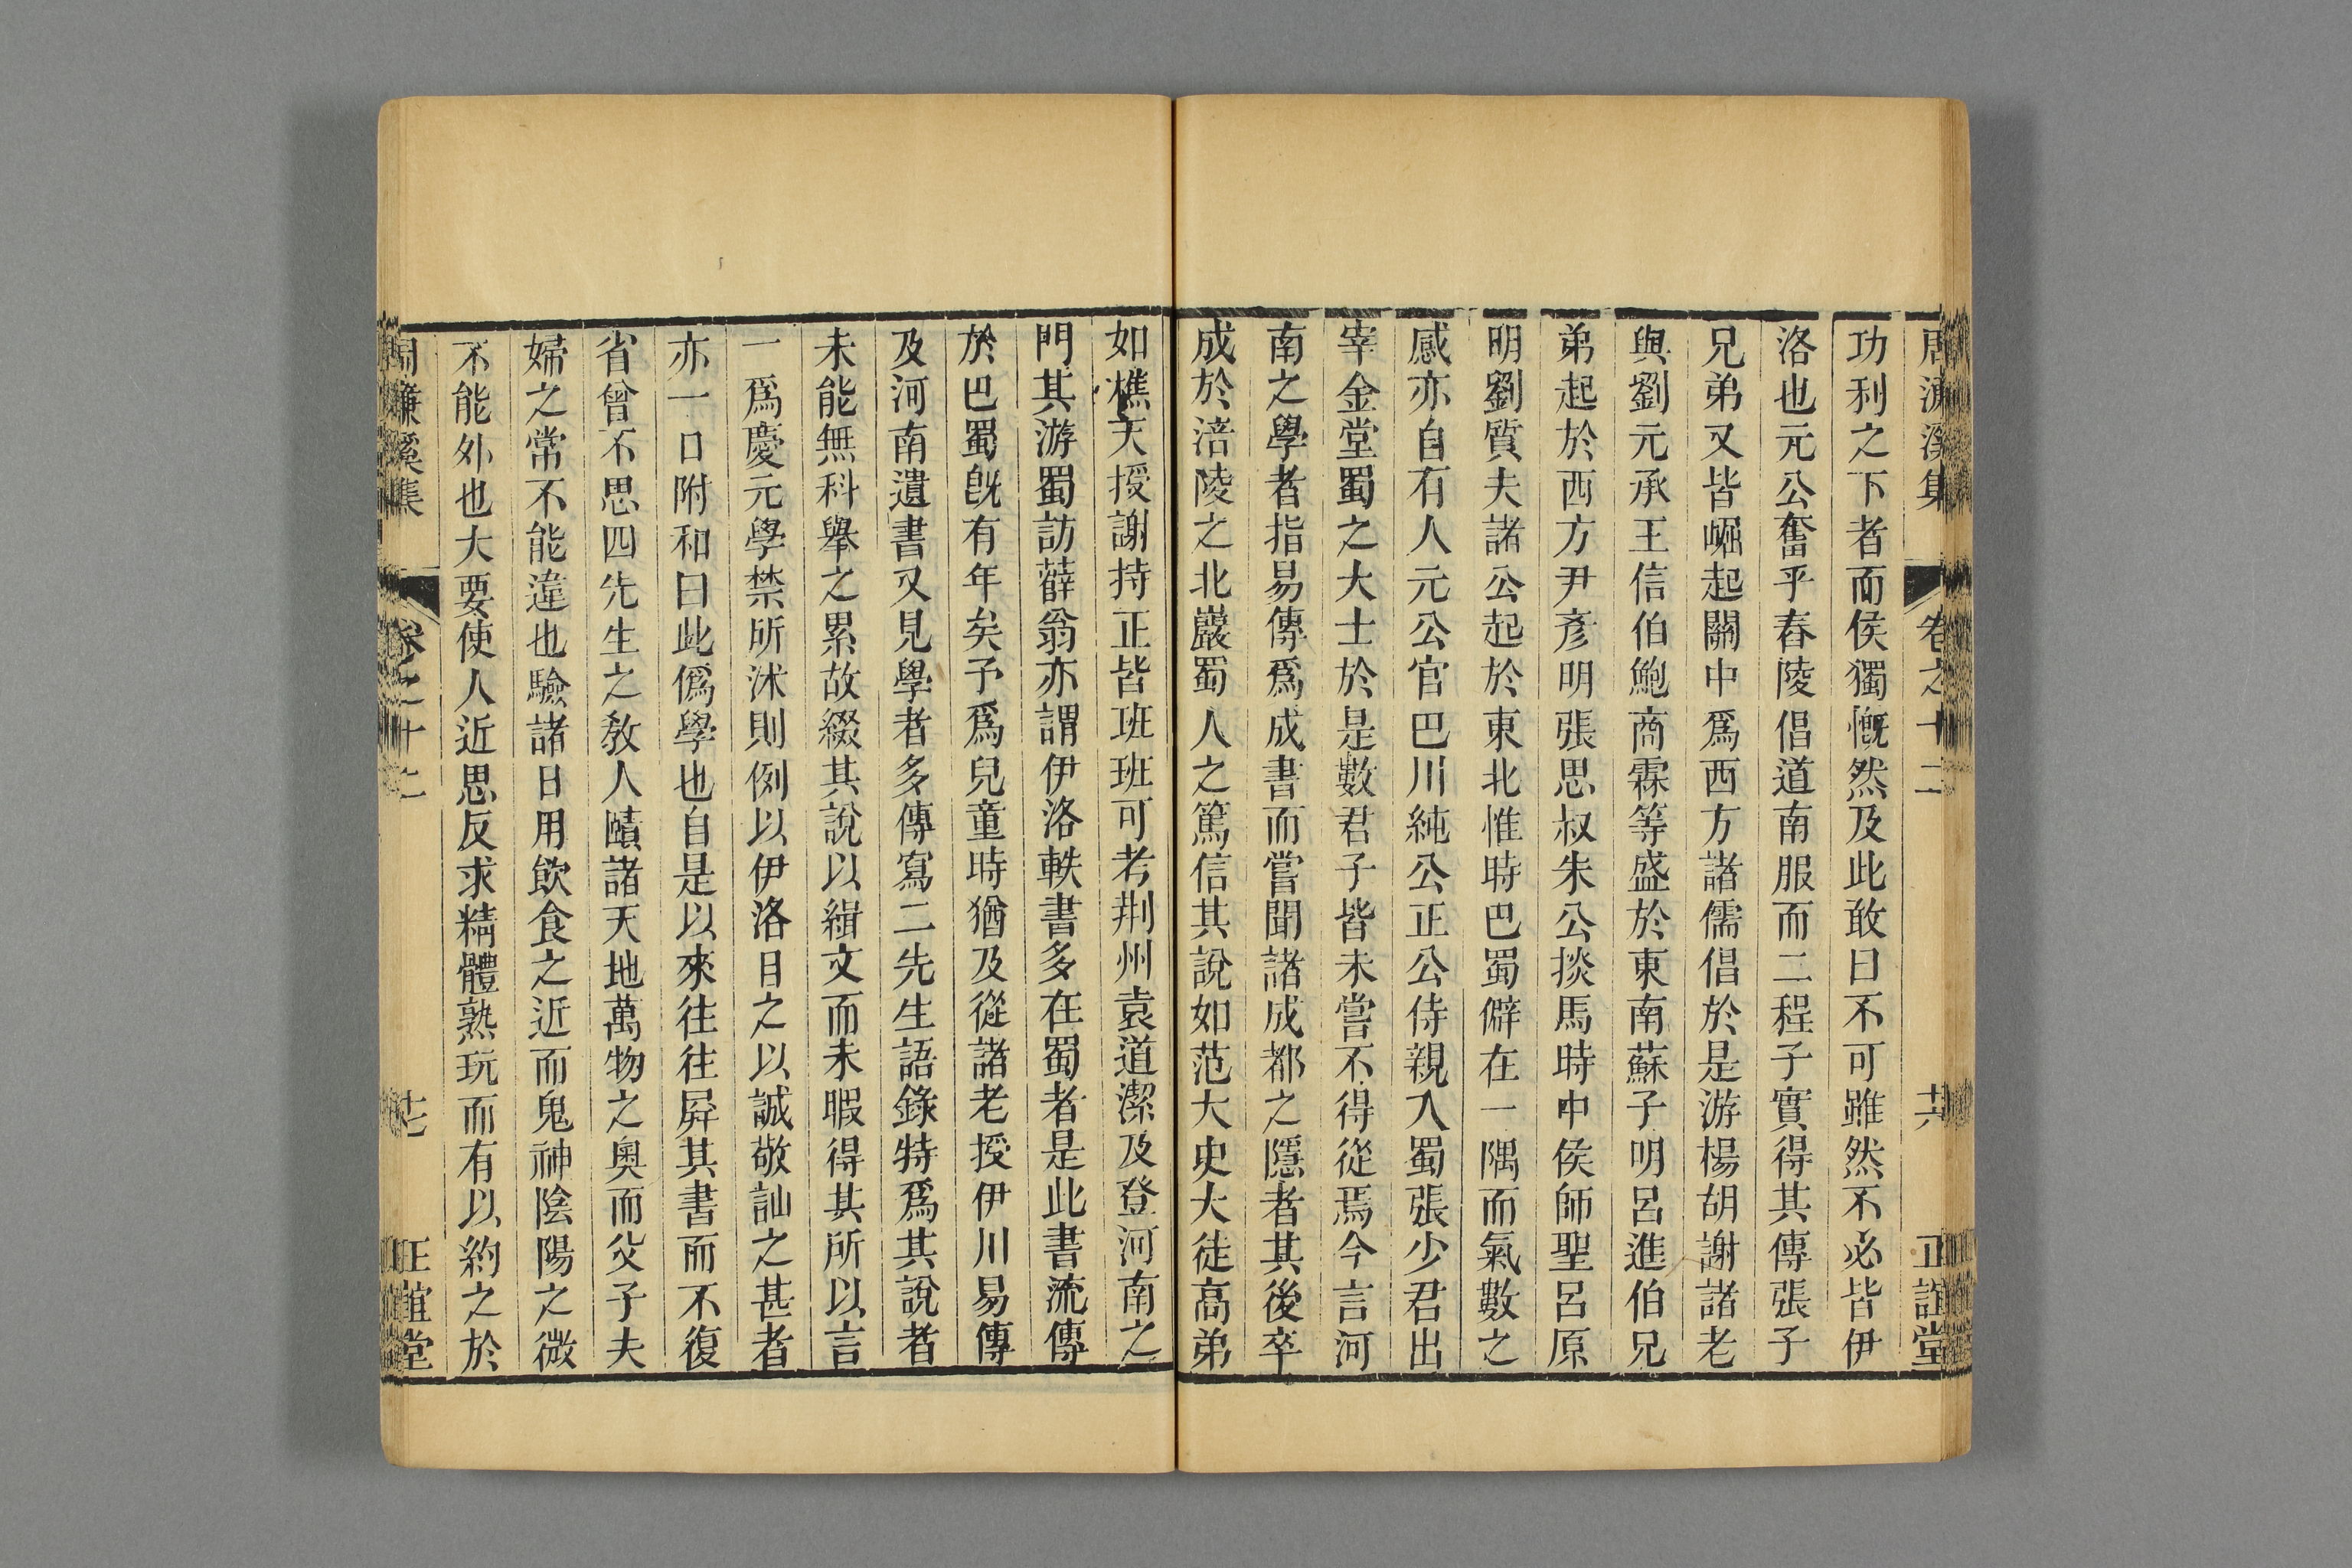 周濂溪集 卷之十二 共 正誼堂
功利之下者而侯獨慨然及此敢曰不可雖然不必皆伊
洛也元公奮乎舂陵倡道南服而二程子實得其傳張子
兄弟又皆崛起關中爲西方諸儒倡於是游楊胡謝諸老
與劉元承王信伯鮑商霖等盛於東南蘇子明呂進伯兄
弟起於西方尹彥明張思叔朱公掞馬時中侯師聖呂原
明劉質夫諸公起於東北惟時巴蜀僻在一隅而氣數之
感亦自有人元公官巴川純公正公侍親入蜀張少君出
宰金堂蜀之大士於是數君子皆未嘗不得從焉今言河
南之學者指易傳爲成書而嘗聞諸成都之隱者其後卒
成於涪陵之北巖蜀人之篤信其說如范大史大徒高弟
如樵天授謝持正皆班班可考荆州袁道潔及登河南之
門其游蜀訪薛翁亦謂伊洛軼書多在蜀者是此書流傳
於巴蜀旣有年矣予爲兒童時猶及從諸老授伊川易傳
及河南遺書又見學者多傳寫二先生語錄特爲其說者
未能無科舉之累故綴其說以緝文而未暇得其所以言
一爲慶元學禁所沭則例以伊洛目之以誠敬訕之甚者
亦一口附和曰此僞學也自是以來往往屏其書而不復
省曾不思四先生之敎人賾諸天地萬物之奧而父子夫
婦之常不能違也驗諸日用飮食之近而鬼神陰陽之微
不能外也大要使人近思反求精體熟玩而有以約之於
周濂溪集 卷之十二 正誼堂